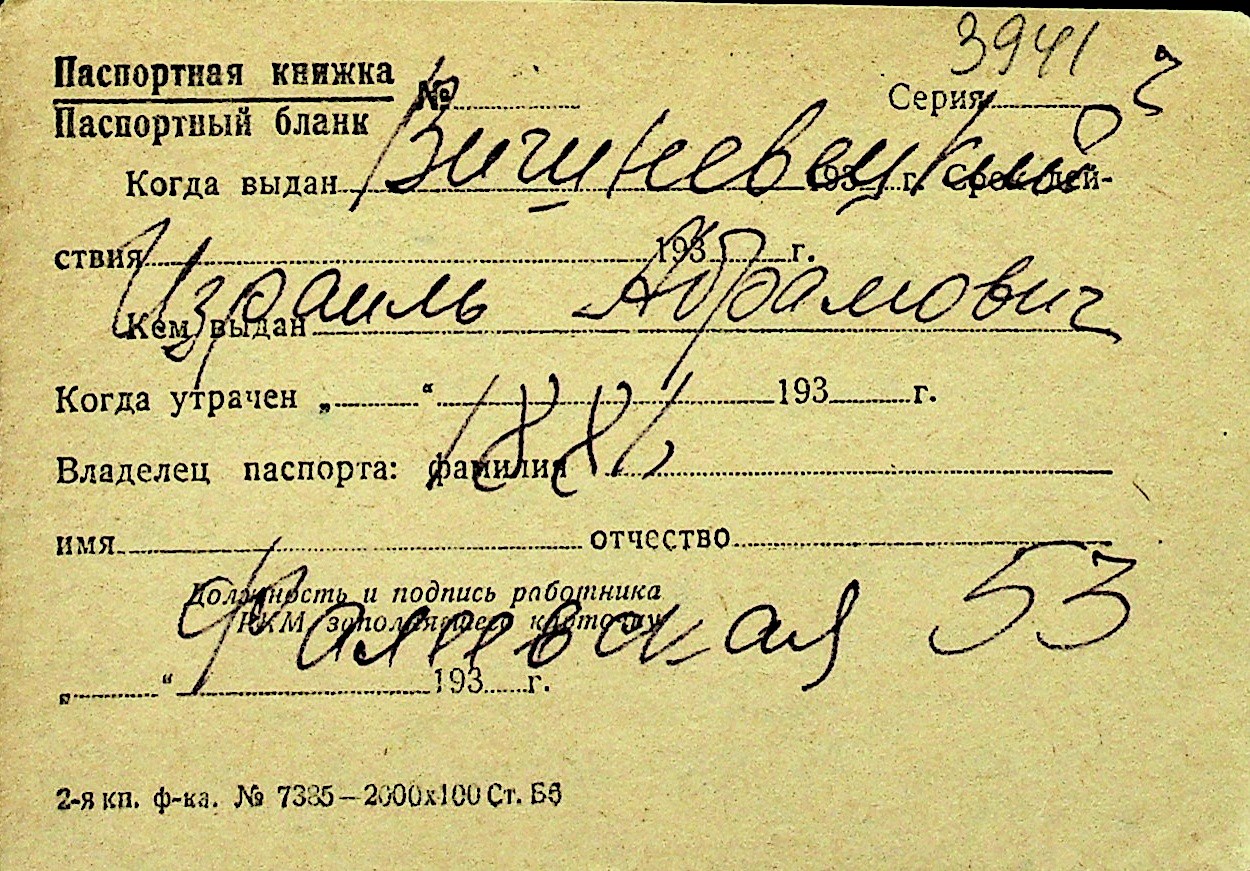 3941
Паспортная книжка
Паспортный бланк
№ Серия
Вишневецкий
Когда выдан 193 г. Срок дей-
ствия 193 г.
Израиль Абрамович
Кем выдан
Когда утрачен „ “ 193 г.
Владелец паспорта: фамилия
имя отчество
Должность и подпись работника
РКМ заполнявшего карточку
53
„ “ 193 г.
2-я кп. ф-ка. № 7385—2000х100 Ст. Бб